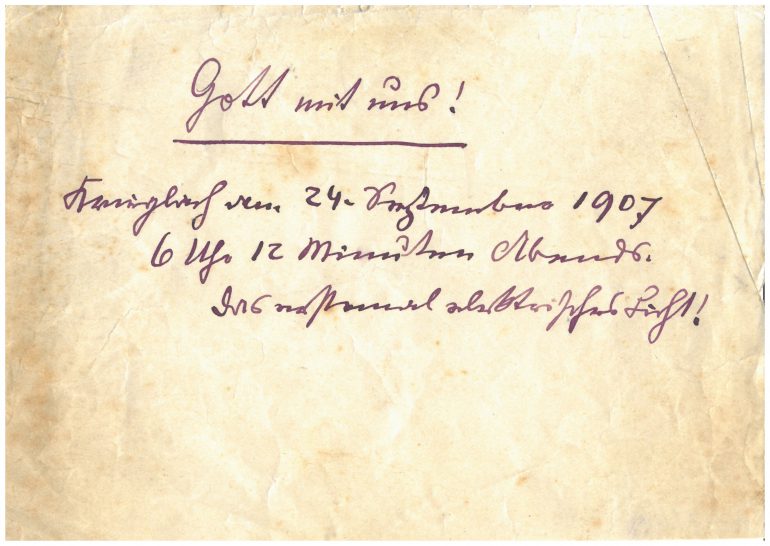 Gott mit uns!
Krieglach am 24. September 1907
6 Uhr 12 Minuten Abends.
das erstemal elektrisches Licht!